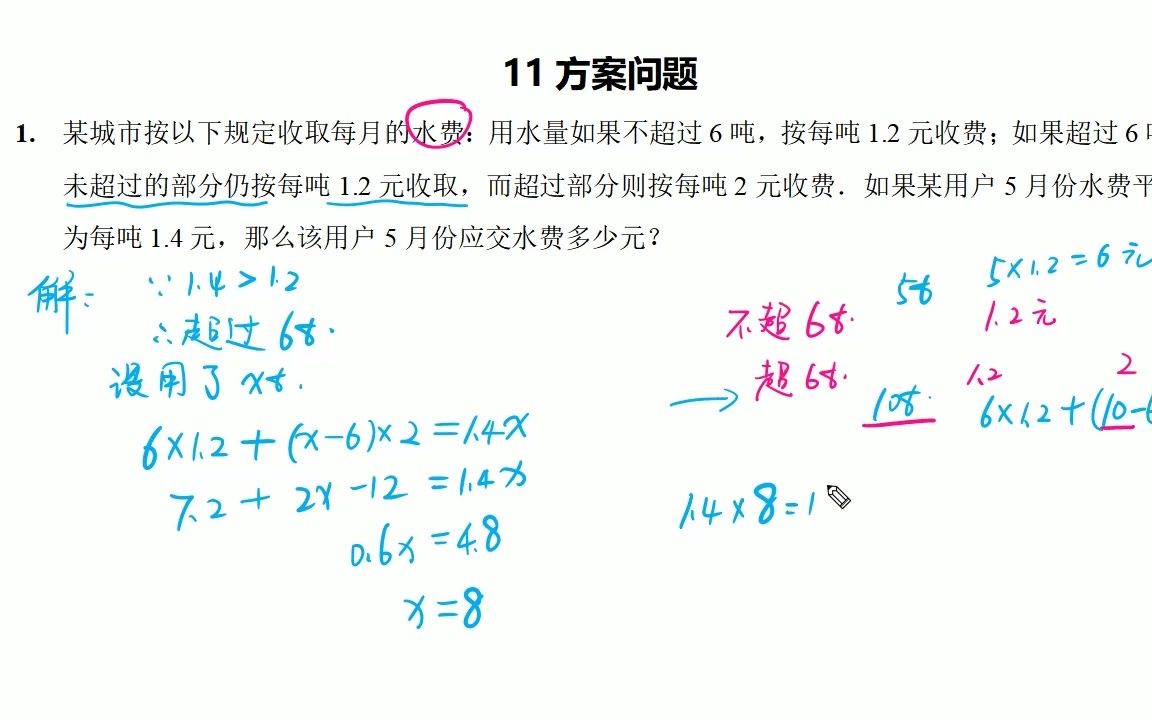 11 方案问题
1. 某城市按以下规定收取每月的水费：用水量如果不超过 6 吨，按每吨 1.2 元收费；如果超过 6
未超过的部分仍按每吨 1.2 元收取，而超过部分则按每吨 2 元收费．如果某用户 5 月份水费平
为每吨 1.4 元，那么该用户 5 月份应交水费多少元？
解： ∵ 1.4 > 1.2
∴ 超过 6t.
设用了 xt.
6×1.2 + (x-6)×2 = 1.4x
7.2 + 2x -12 = 1.4x
0.6x = 4.8
x = 8
5t 5×1.2 = 6 元
不超 6t. 1.2 元
超 6t. 1.2 2
→ 10t. 6×1.2 + (10-6
1.4 × 8 = 1